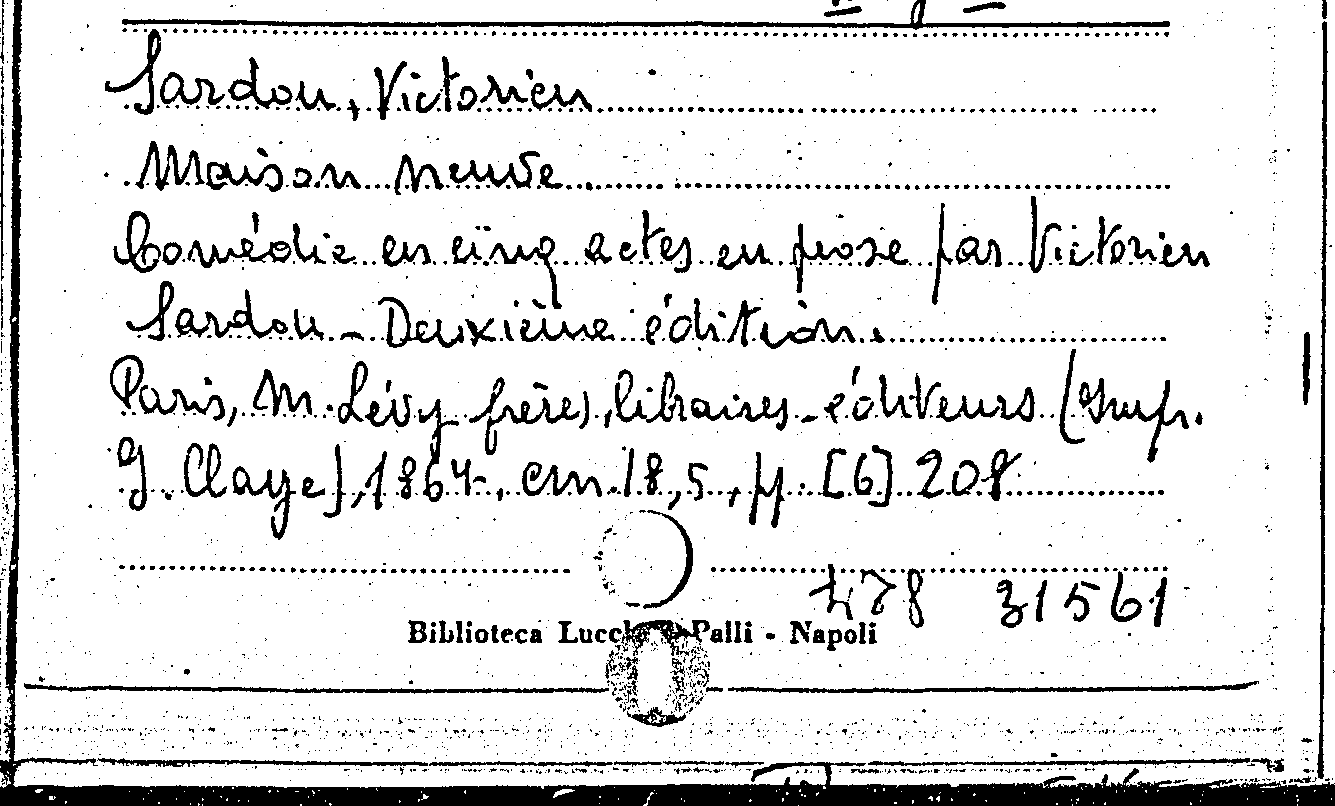 Sardou, Victorien
Maison neuve
Comédie en cinq actes en prose par Victorien
Sardou - Deuxième édition.
Paris, M. Lévy frères, libraires-éditeurs (Impr.
J. Claye], 1867, cm. 18,5, pp. [6] 208
478 31561
Biblioteca Lucchesi Palli - Napoli